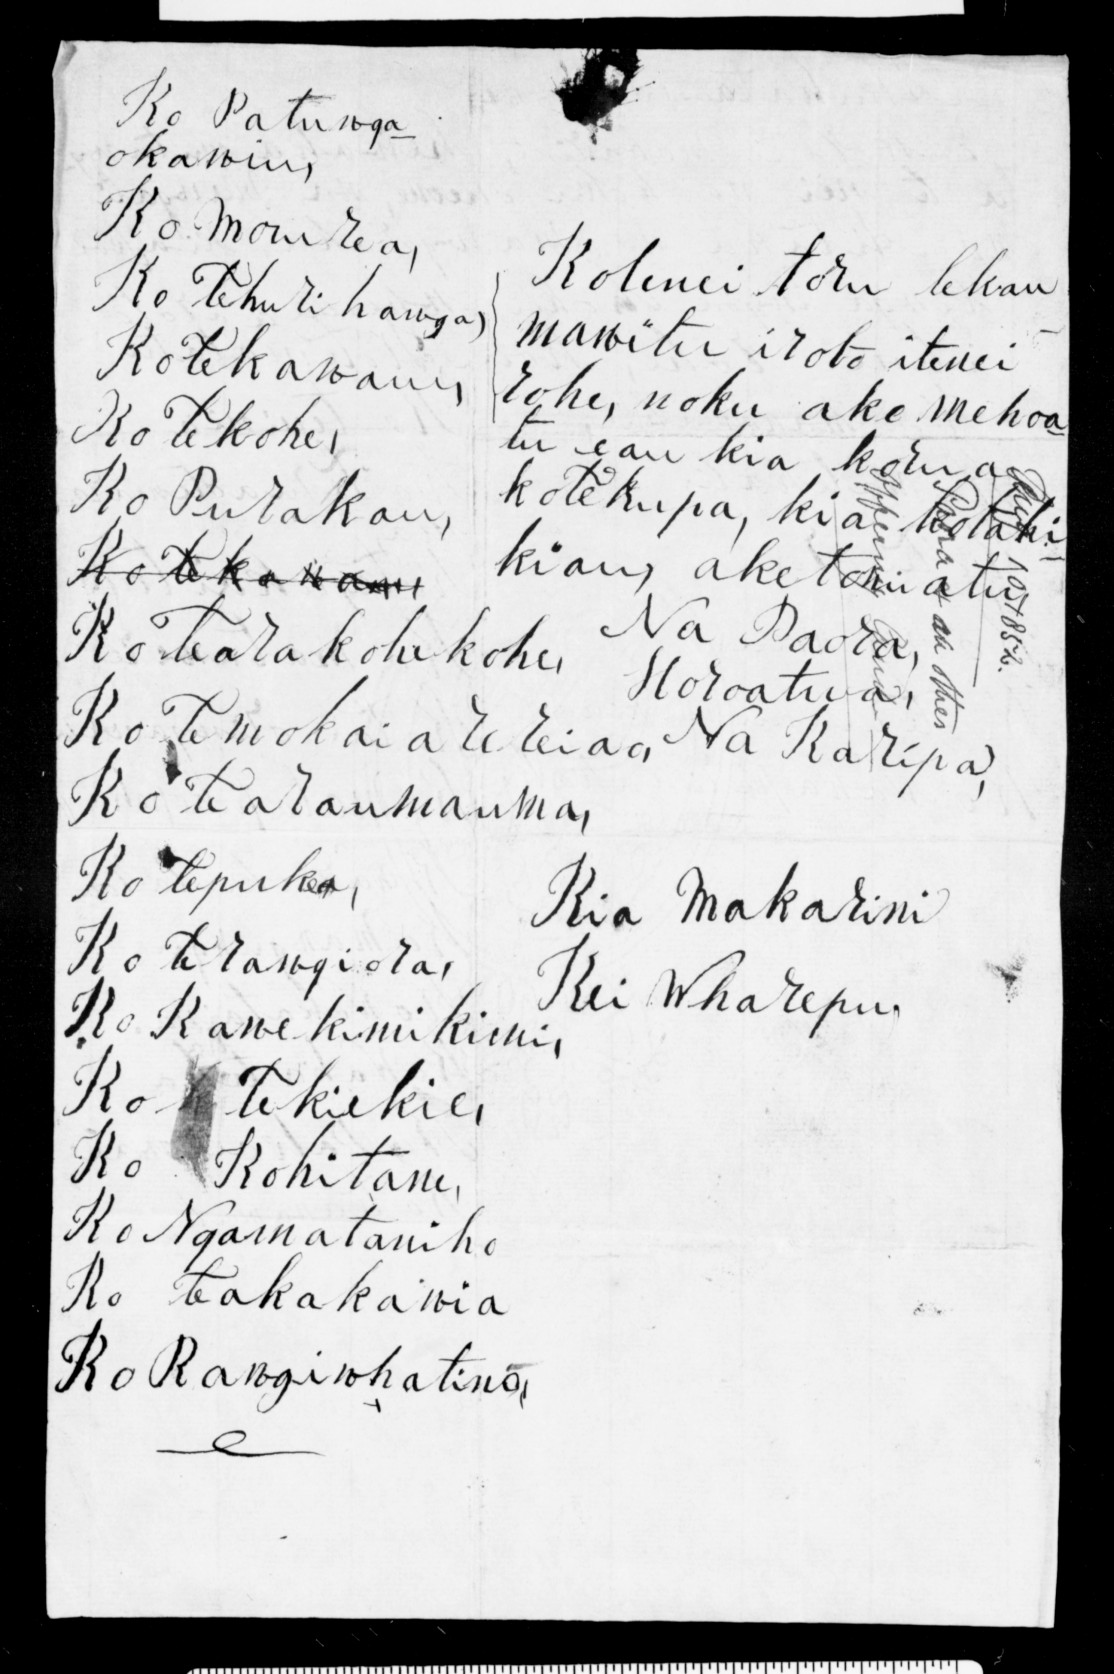 Ko Patunga
okawiu,
Ko Mourea,
Ko Tehurihanga,
Kotekawau,
Ko Tekohe,
Ko Purakau,
Ko tekawau
Ko Tearakohekohe,
Ko Temokaiarereiao,
Ko Tearaumauma,
Ko tepukea,
Ko terangiora,
Ko Kawekimikimi,
Ko Tekiekie,
Ko Kohitane,
Ko Ngamataniho
Ko teakakawia
Ko Rangiwhatino,
Kotenei toru tekau
mawitu iroto itenei
rohe, noku ake mehoa
tu eau kia korua
kotekupa, kia kotahi
kiau, aketonuatu
Na Paora,
Horoatua,
Na Karipa,
Kia Makarini
Kei Wharepu.
Paora & an other